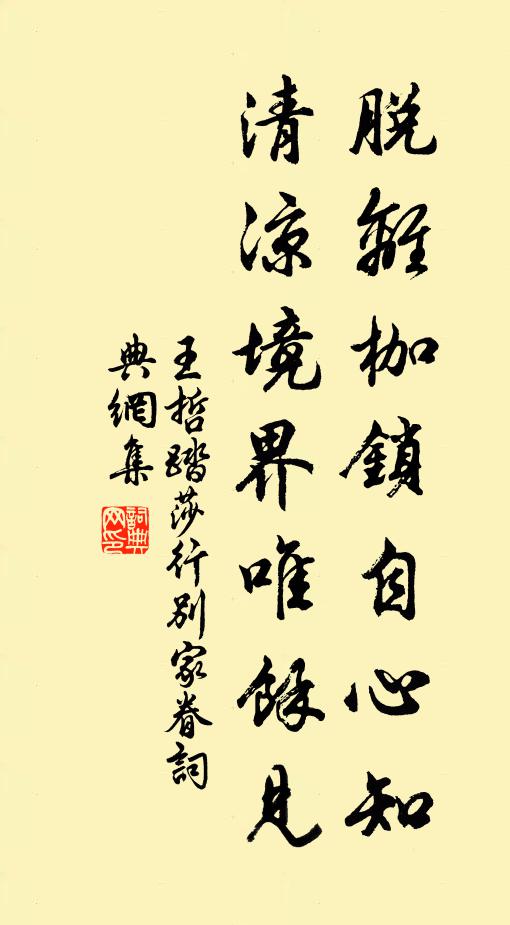 脱離枷鎖自心知
清涼境界唯餘見
王哲踏莎行别家眷詞
典網集
詞典
网印